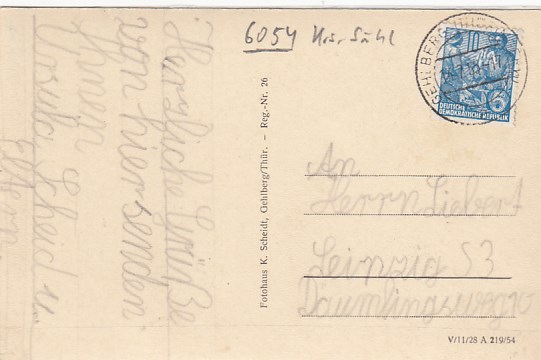 6054 Krs. Suhl
Herzliche Grüße
von hier senden
Ihnen
Ursula Scheidt u.
Eltern
Fotohaus K. Scheidt, Gehlberg/Thür. – Reg.-Nr. 26
GEHLBERG
DEUTSCHE
DEMOKRATISCHE REPUBLIK
An
Herrn Liebert
Leipzig S3
Däumlingsweg
V/11/28 A 219/54